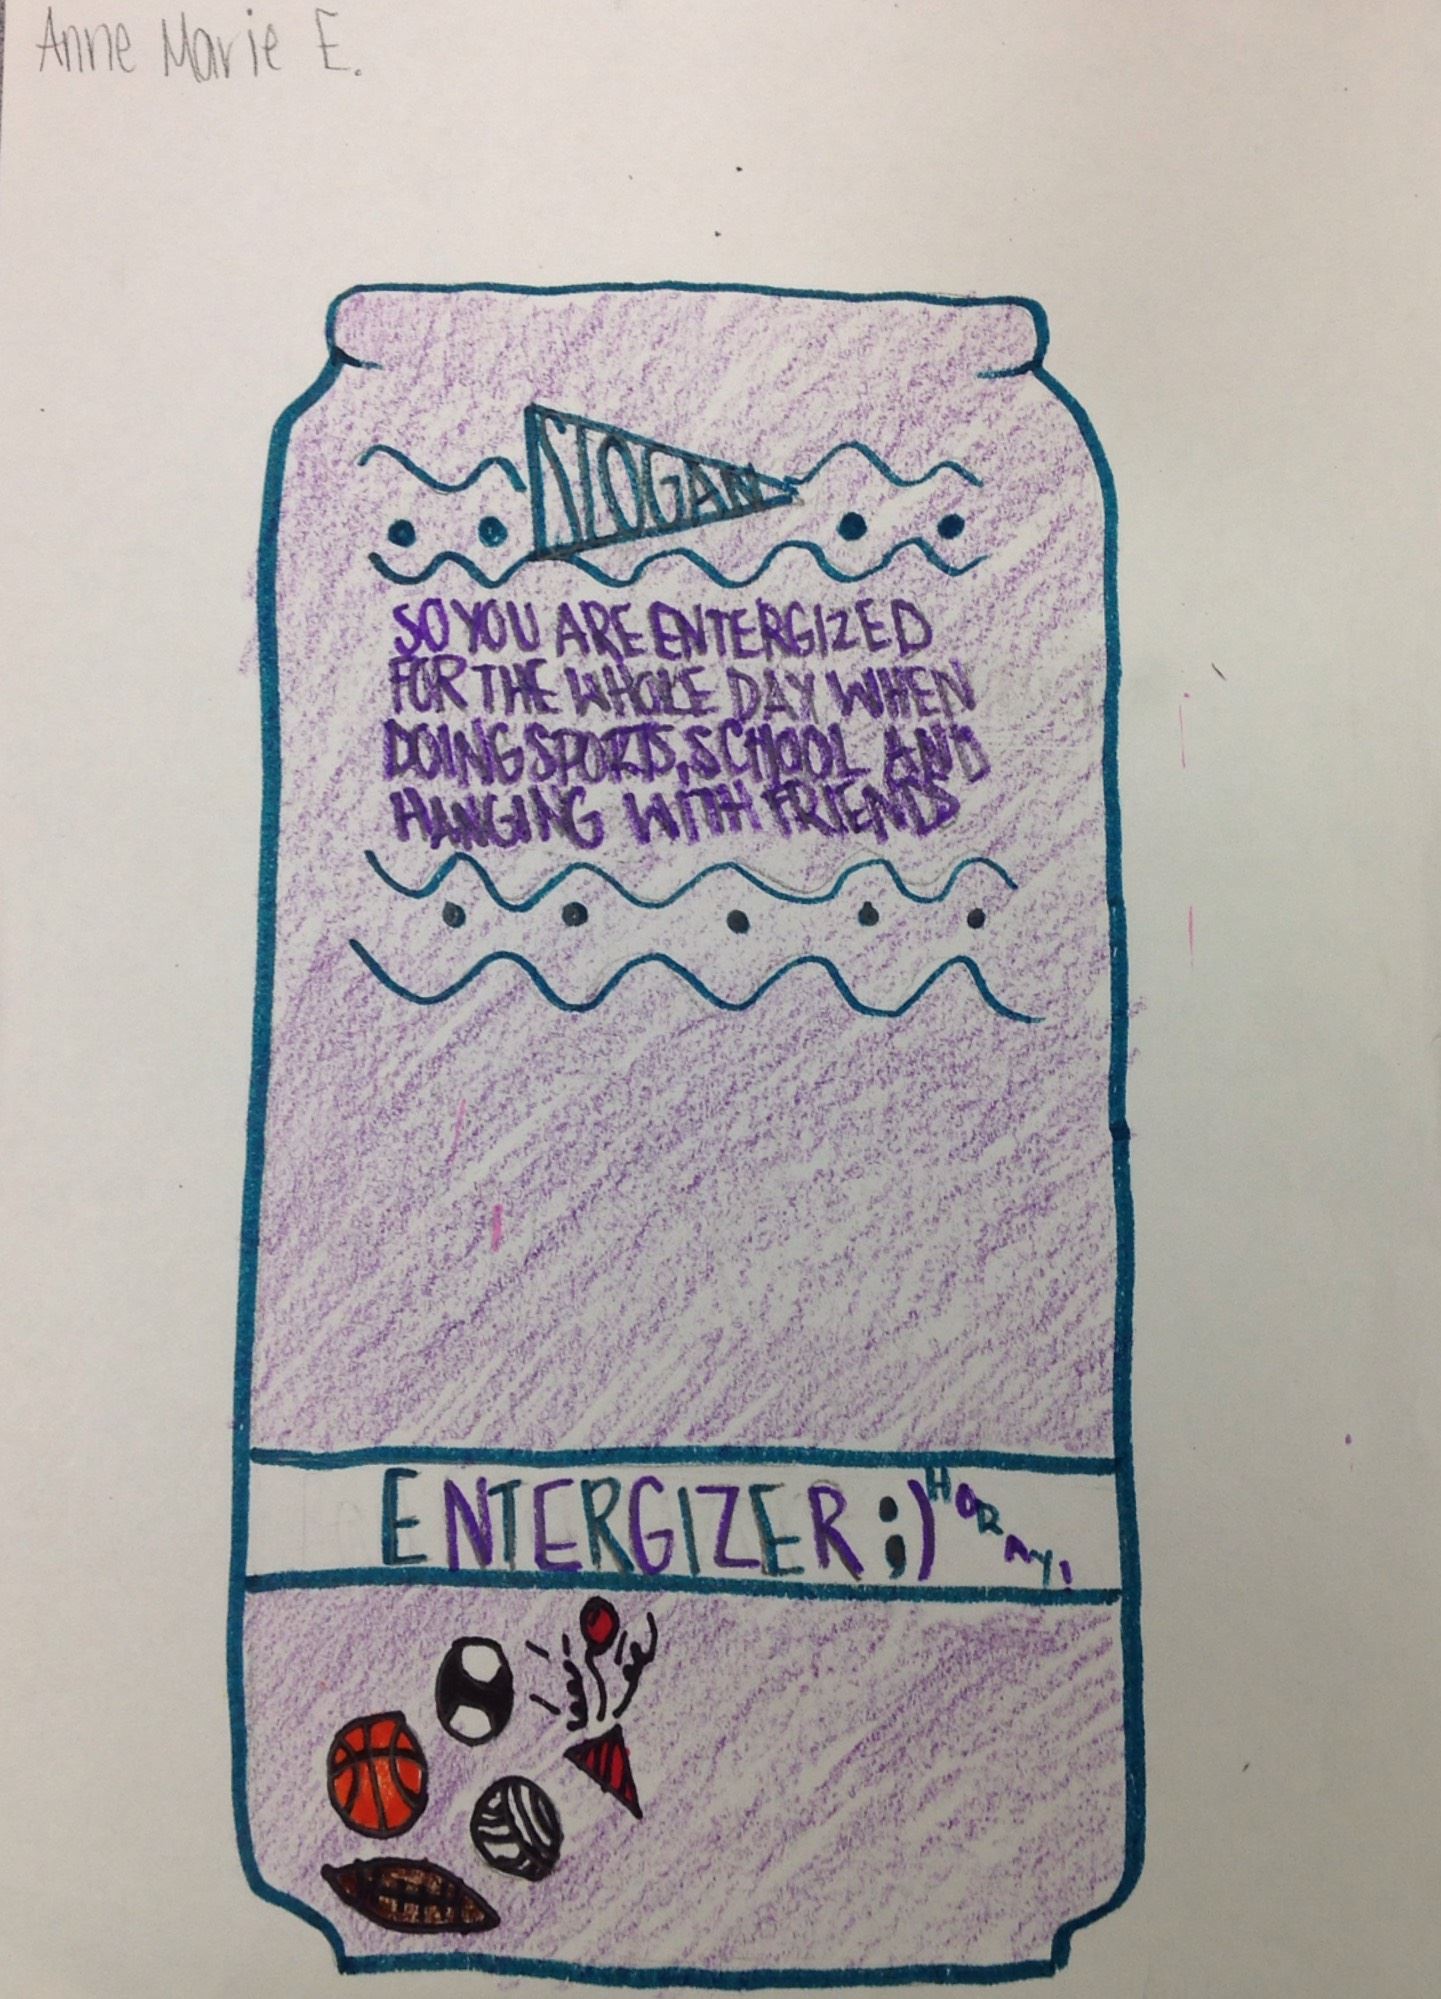 Anne Marie E.
SLOGAN
SO YOU ARE ENTERGIZED
FOR THE WHOLE DAY WHEN
DOING SPORTS, SCHOOL AND
HANGING WITH FRIENDS
ENTERGIZER ;) HORAY!